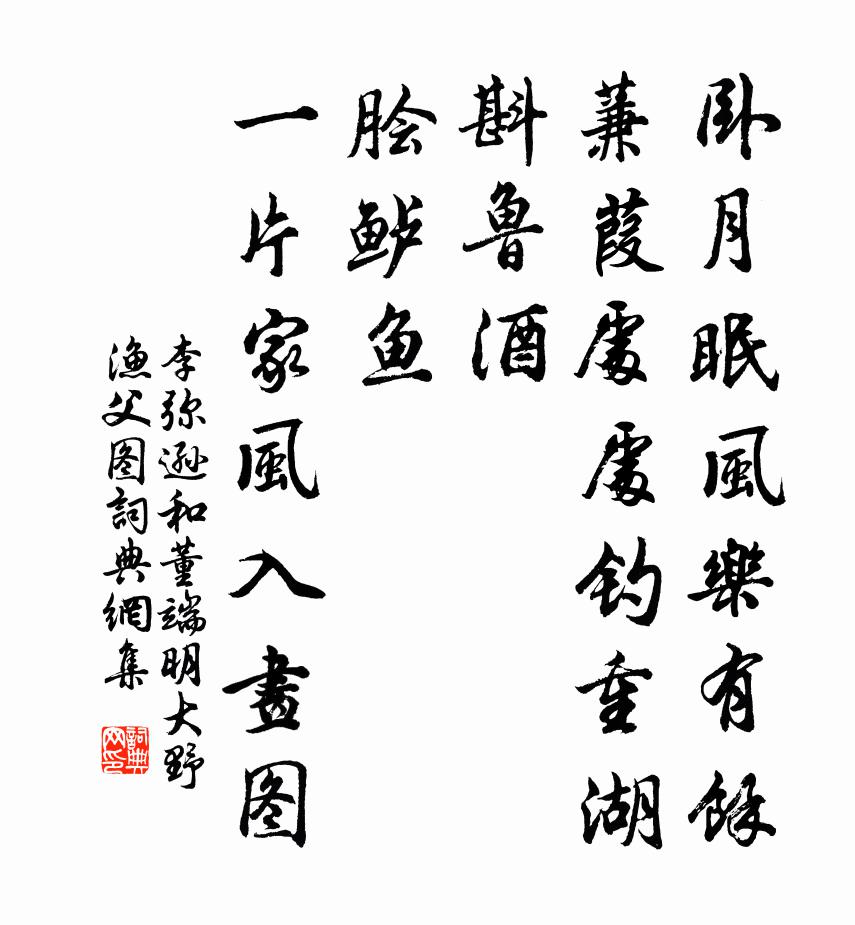 卧月眠風樂有餘
蒹葭處處钓重湖
斟魯酒
脍鲈鱼
一片家風入畫图
李弥遜和董端明大野
漁父图詞典網集
詞典网印